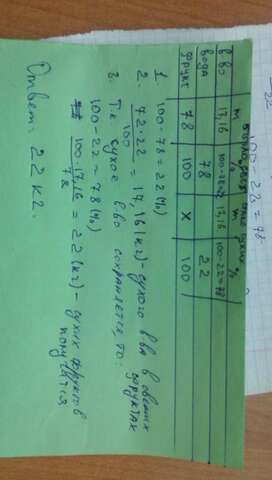 m % m %
в-во 17,16 100-78=22 17,16 100-22=78
вода 78 22
фрукт 78 100 x 100
1. 100-78=22(%)
2. 78·22/100=17,16(кг)-сухого в-ва в свежих фруктах
3. Т.к сухое в-во сохраняется, то:
100-22=78(%)
100·17,16/78=22(кг)-сухих фруктов получится
Ответ: 22 кг.